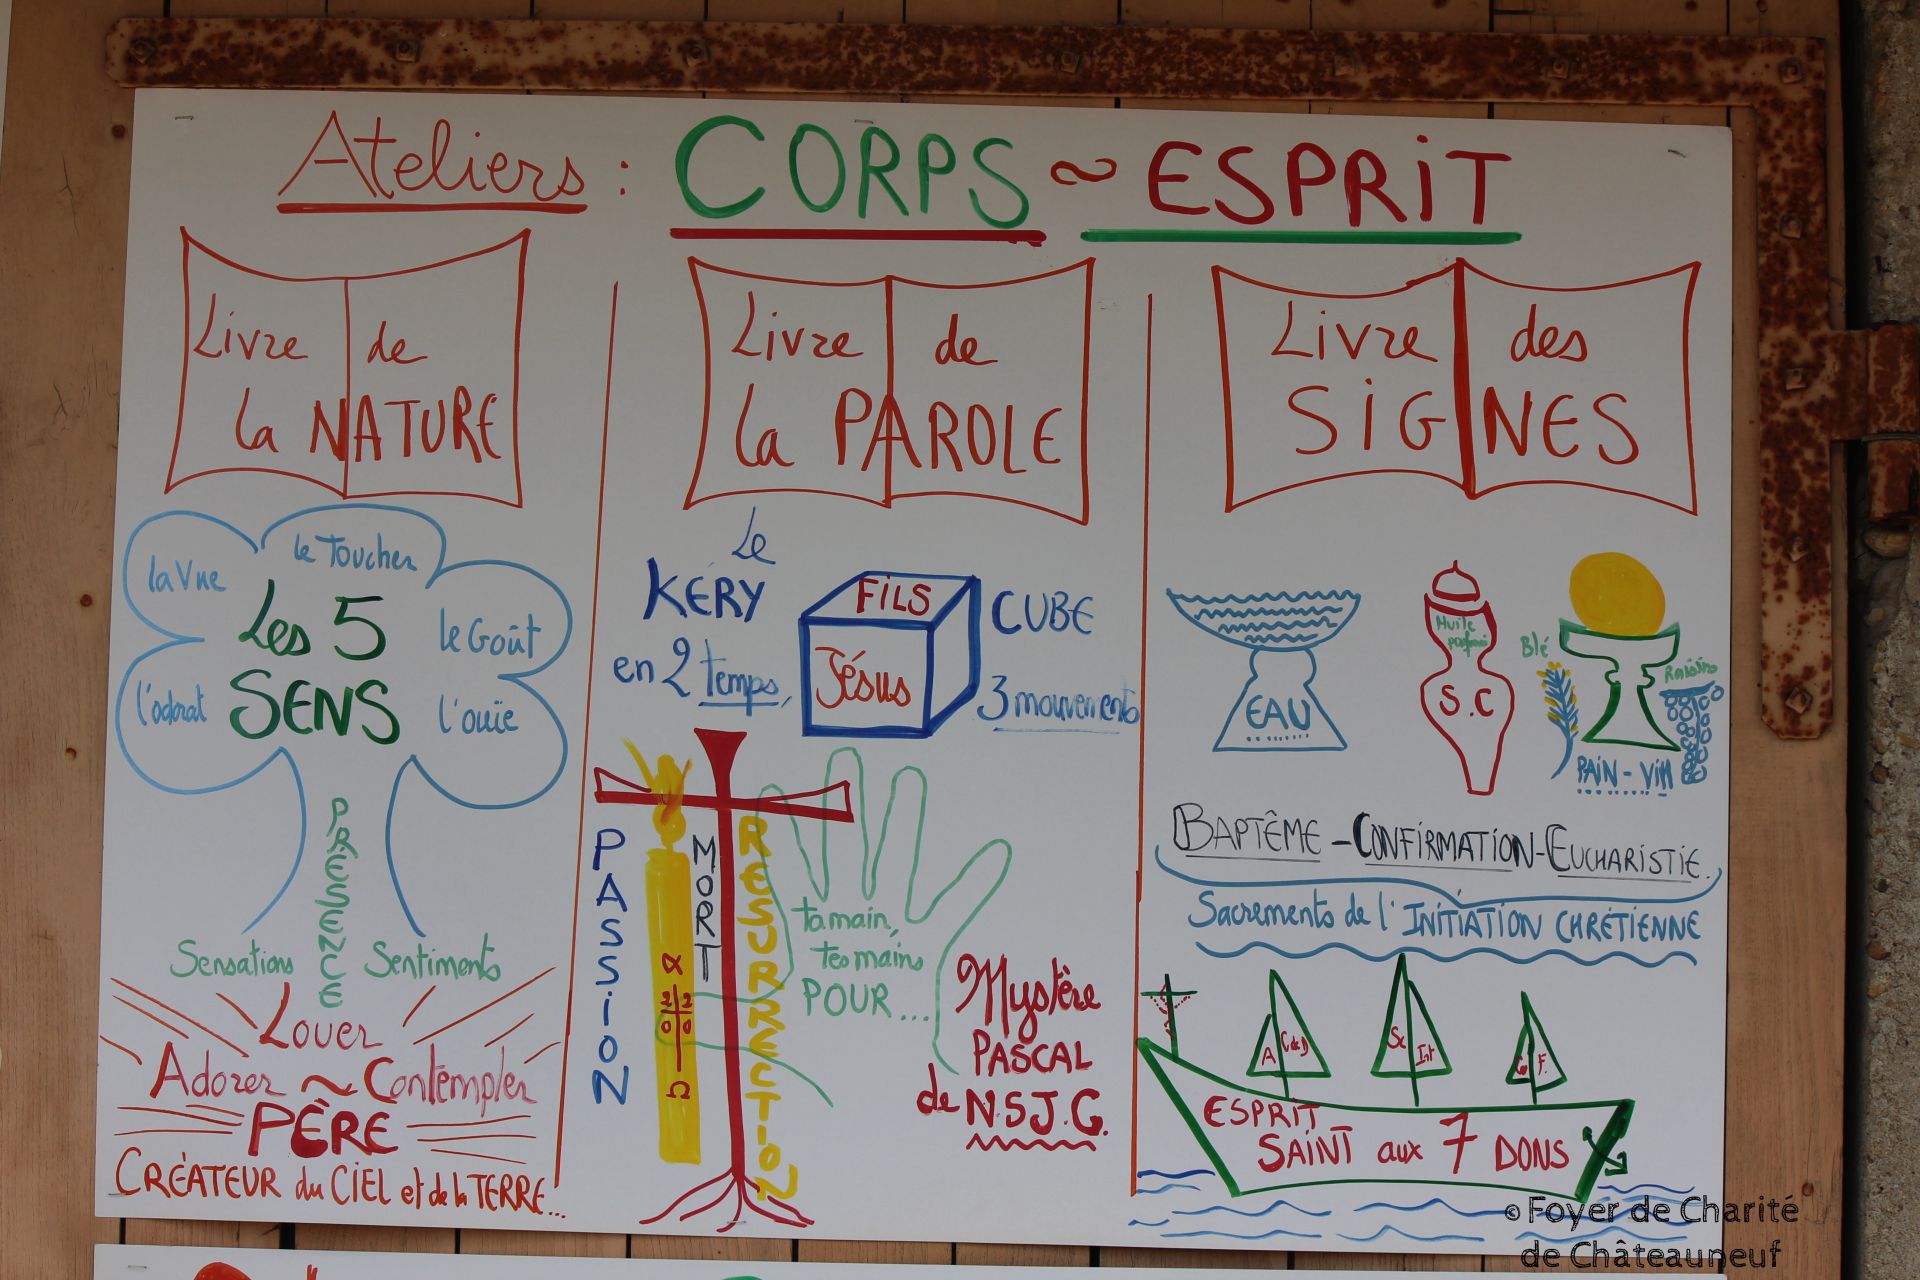 Ateliers : CORPS ~ ESPRiT
Livre de
la NATURE
la Vue
le Toucher
Les 5
SENS
le Goût
l'odorat
l'ouïe
PRESENCE
Sensations
Sentiments
Louer
Adorer ~ Contempler
PÈRE
CRÉATEUR du CIEL et de la TERRE...
Livre de
la PAROLE
Le
KÉRY
CUBE
FiLS
Jésus
en 2 temps,
3 mouvements
PASSiON
MORT
RESURRECTiON
α
2 2
0 0
Ω
ta main,
tes mains
POUR...
Mystère
PASCAL
de N.S.J.C.
Livre des
SiGNES
EAU
Huile
S.C
Blé
Raisins
PAiN - ViN
BAPTÊME - CONFiRMATiON - EUCHARiSTiE.
Sacrements de l'INiTiATiON CHRÉTiENNE
A C de D
Sc Int
Co F.
ESPRiT
SAiNT aux 7 DONS
© Foyer de Charité
de Châteauneuf